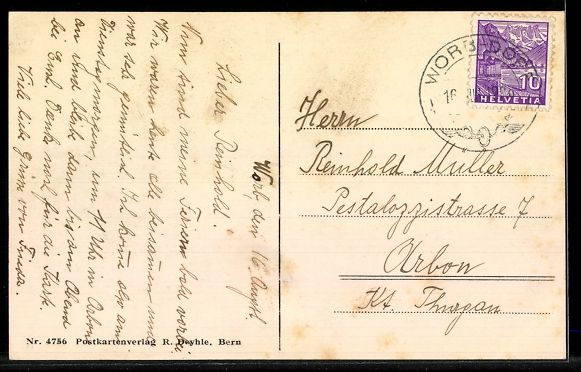 Worb den 16. Augst.
Lieber Reinhold!
Nun sind meine Ferien bald vorbei
Wir waren heute alle beisammen und
war sehr gemütlich. Ich komme also am
Dienstagmorgen, um 11 Uhr in Arbon
an und bleibe dann bis am Abend
bei Euch. Danke noch für die Karte.
Viele liebe Grüsse von
Nr. 4756 Postkartenverlag R. Deyhle, Bern
WORB DORF
16
10
HELVETIA
Herrn
Reinhold Müller
Pestalozzistrasse 7
Arbon
Kt. Thurgau